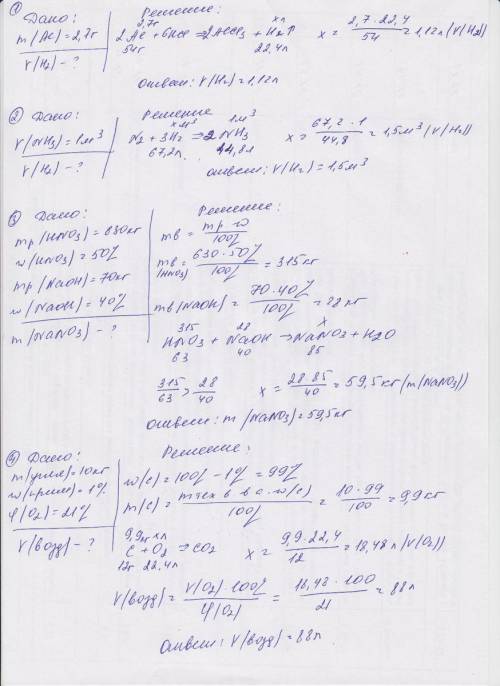 ① Дано:
m(Al)=2,7г
V(H₂)-?
Решение:
2,7г хл
2Al+6HCl=>2AlCl₃+H₂↑
54г 22,4л
x = 2,7·22,4 / 54 = 1,12л (V(H₂))
Ответ: V(H₂)=1,12л
② Дано:
V(NH₃)=1м³
V(H₂)-?
Решение
хм³ 1м³
N₂+3H₂=>2NH₃
67,2л 44,8л
x= 67,2·1 / 44,8 = 1,5м³ (V(H₂))
ответ: V(H₂)=1,5м³
③ Дано:
mр(HNO₃)=630кг
w(HNO₃)=50%
mр(NaOH)=70кг
w(NaOH)=40%
m(NaNO₃)-?
Решение:
mв= mр·w / 100%
mв(HNO₃)= 630·50% / 100% = 315кг
mв(NaOH)= 70·40% / 100% = 28кг
315 28 х
HNO₃+NaOH=>NaNO₃+H₂O
63 40 85
315/63 > 28/40
x= 28·85 / 40 = 59,5кг (m(NaNO₃))
Ответ: m(NaNO₃)=59,5кг
④ Дано:
m(угля)=10кг
w(прим)=1%
φ(O₂)=21%
V(возд)-?
Решение:
w(c)=100%-1%=99%
m(c)= mтех в ва·w(c) / 100% = 10·99 / 100 = 9,9кг
9,9кг хл
C+O₂=>CO₂
12г 22,4л
x= 9,9·22,4 / 12 = 18,48л (V(O₂))
V(возд)= V(O₂)·100% / φ(O₂) = 18,48·100 / 21 = 88л
Ответ: V(возд)=88л